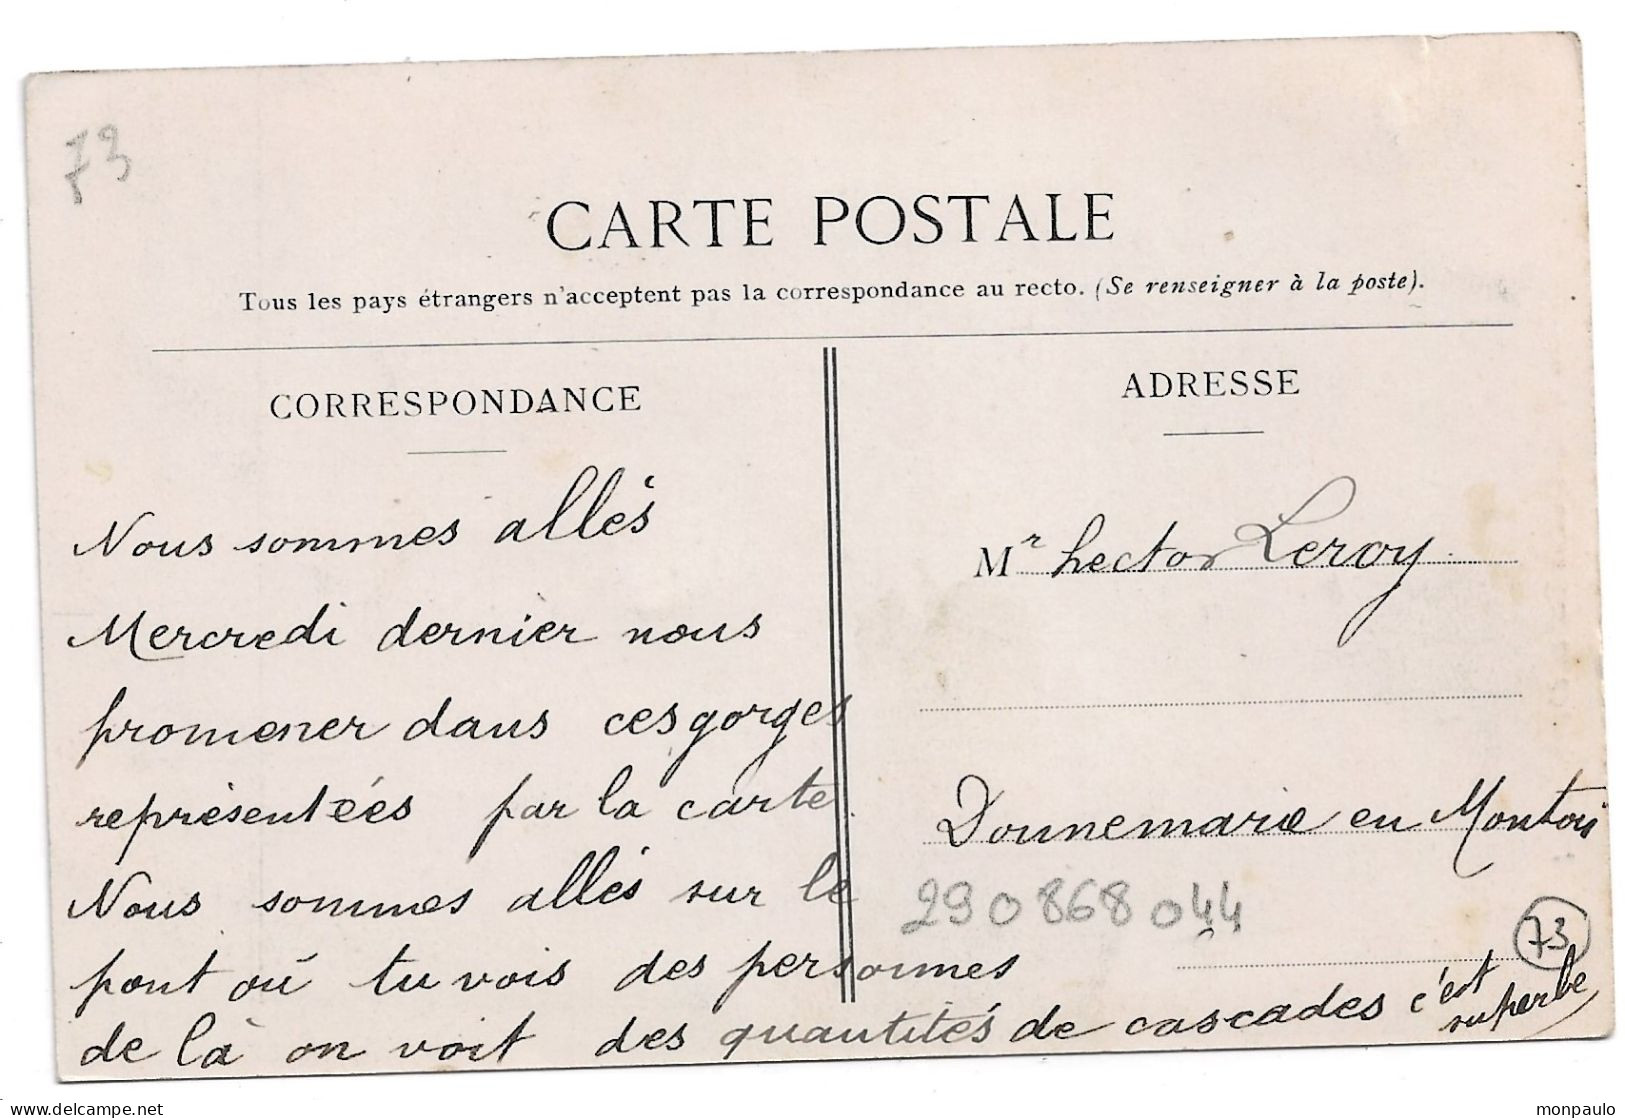 73
CARTE POSTALE
Tous les pays étrangers n'acceptent pas la correspondance au recto. (Se renseigner à la poste).
CORRESPONDANCE
Nous sommes allés
Mercredi dernier nous
promener dans ces gorges
représentées par la carte.
Nous sommes allés sur le
pont où tu vois des personnes
de là on voit des quantités de cascades c'est
superbe
ADRESSE
Mr hector Leroy
Donnemarie en Montois
290868044
73
monpaulo